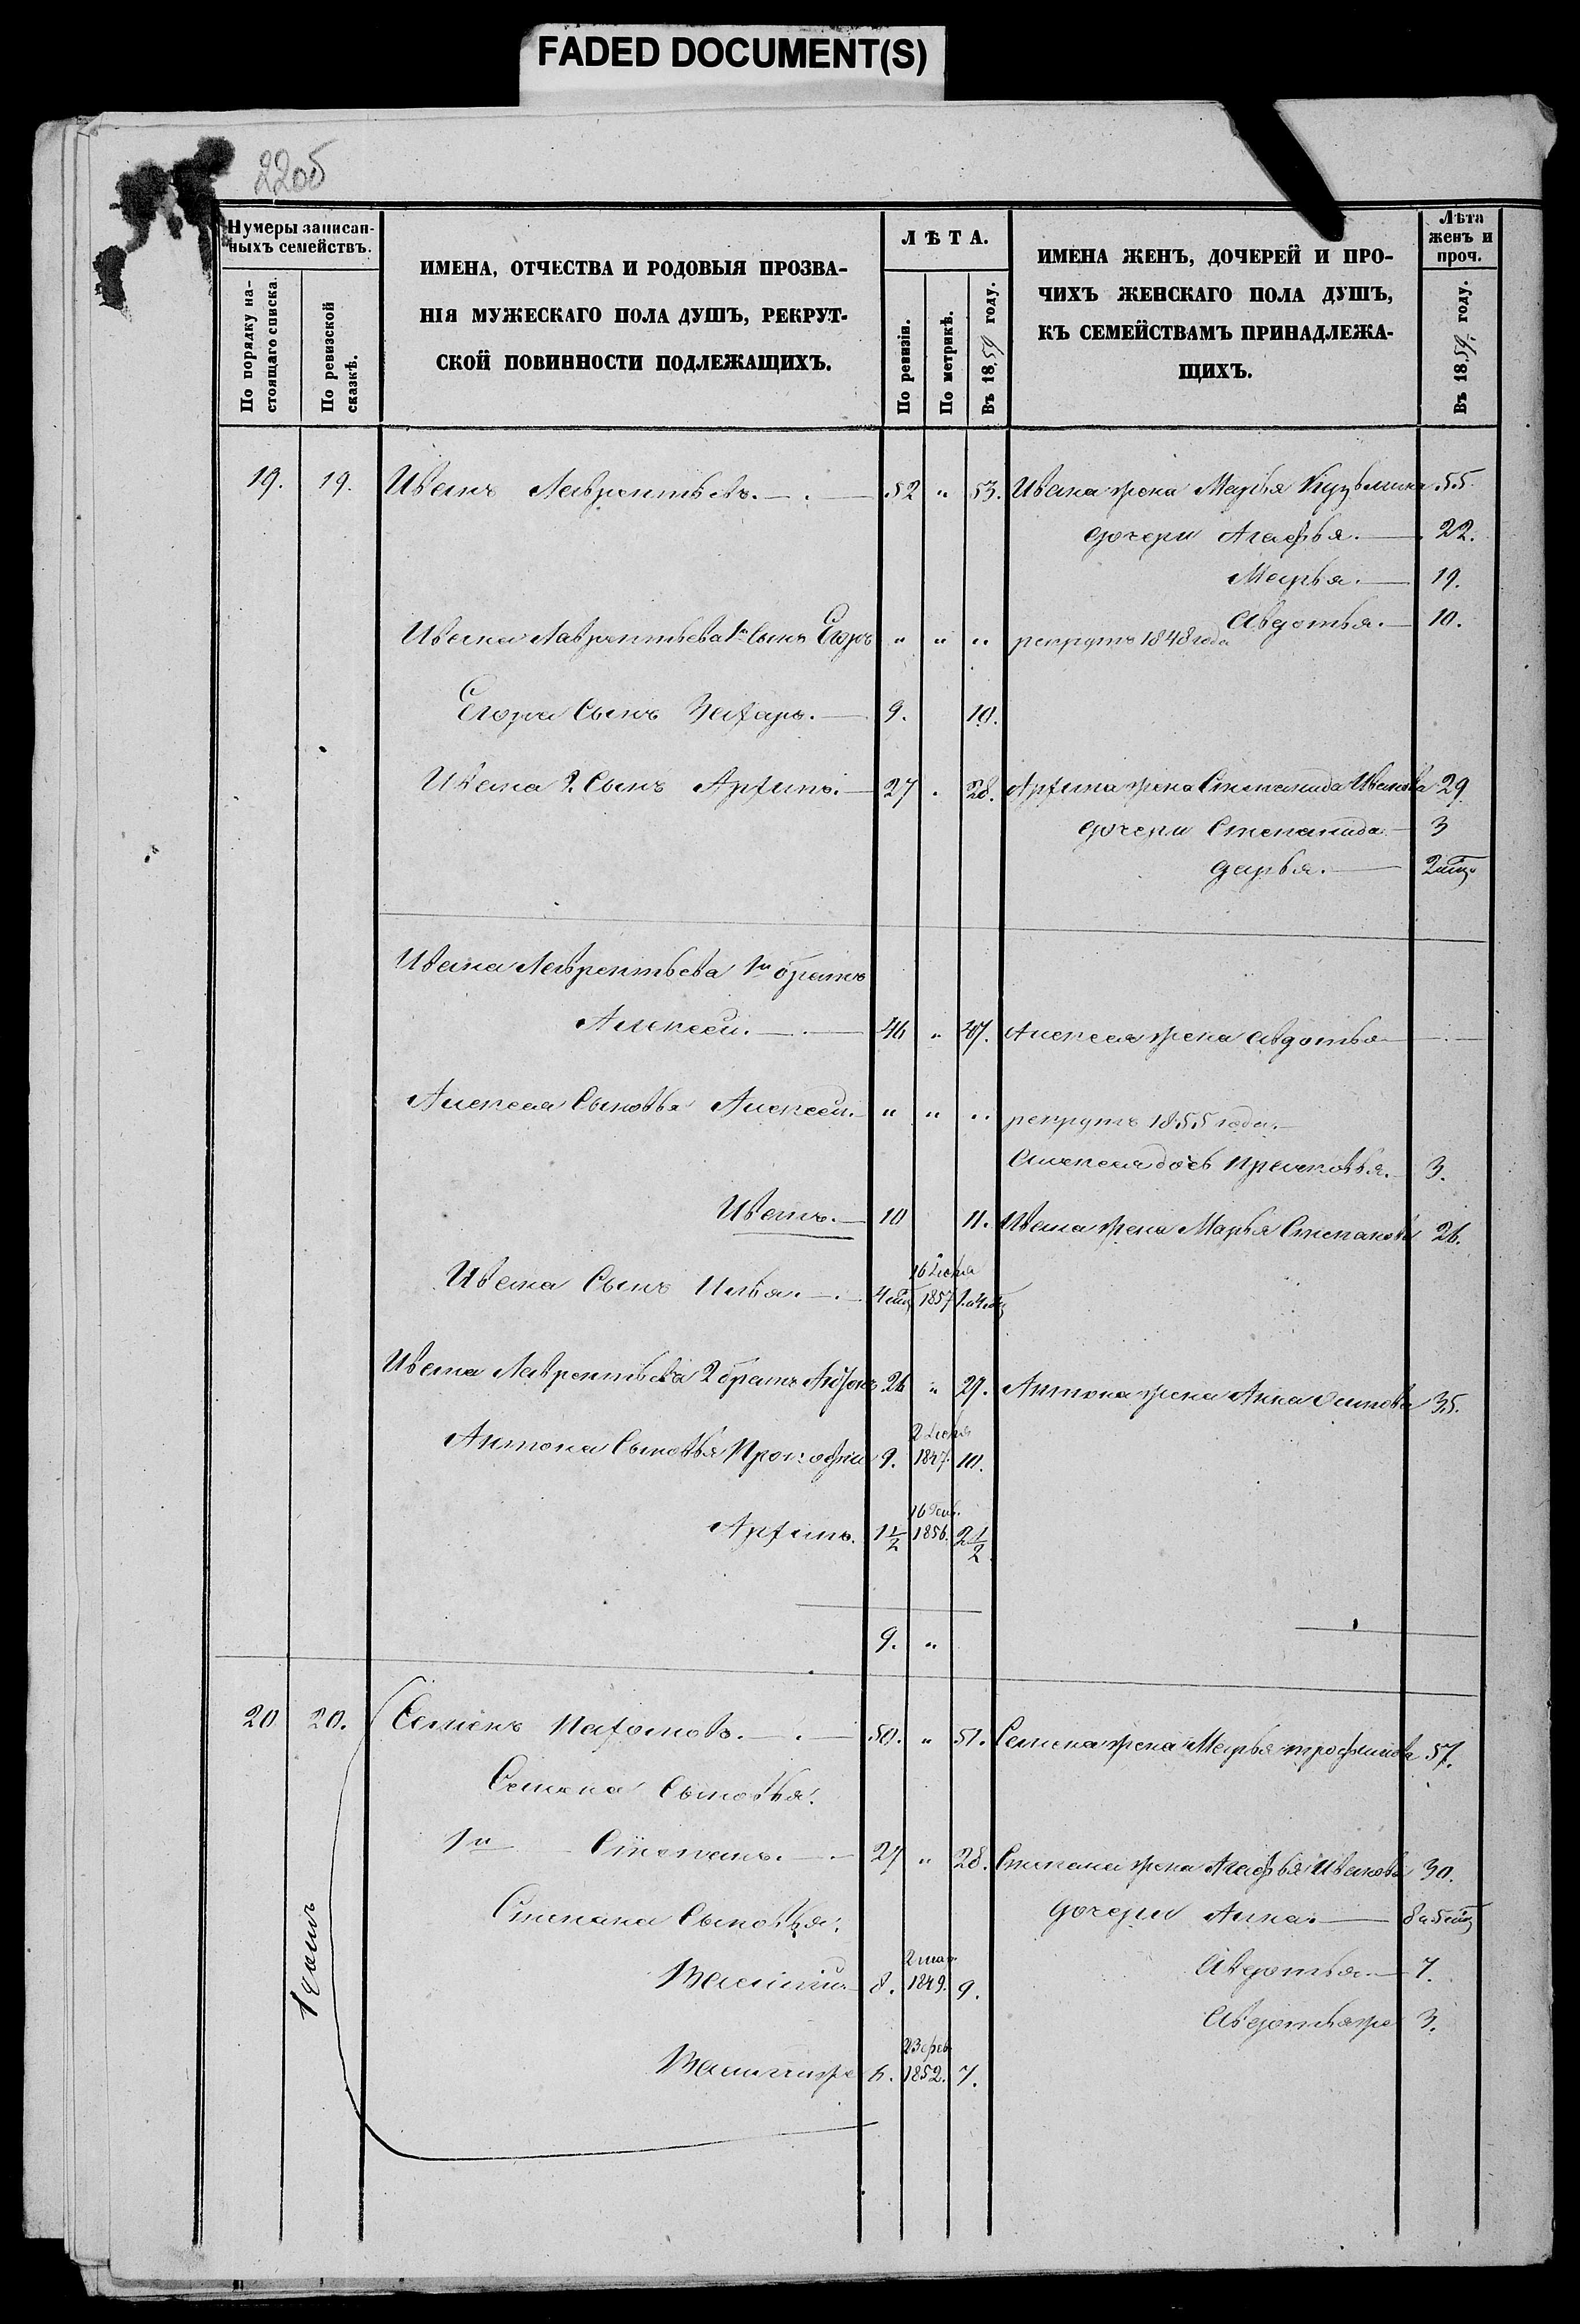 FADED DOCUMENT(S)
22об
Нумеры записан-
ныхъ семействъ.
По порядку на-
стоящаго списка.
По ревизской
сказкѣ.
ИМЕНА, ОТЧЕСТВА И РОДОВЫЯ ПРОЗВА-
НІЯ МУЖЕСКАГО ПОЛА ДУШЪ, РЕКРУТ-
СКОЙ ПОВИННОСТИ ПОДЛЕЖАЩИХЪ.
ЛѢТА.
По ревизіи.
По метрикѣ.
Въ 1859 году.
ИМЕНА ЖЕНЪ, ДОЧЕРЕЙ И ПРО-
ЧИХЪ ЖЕНСКАГО ПОЛА ДУШЪ,
КЪ СЕМЕЙСТВАМЪ ПРИНАДЛЕЖА-
ЩИХЪ.
Лѣта
женъ и
проч.
Въ 1859 году.
19. 19. Иванъ Лаврентьевъ. 52 " 53. Ивана жена Марья Кузьмина 55.
дочери Агафья. 22.
Марья. 19.
Авдотья. 10.
Ивана Лаврентьева 1й Сынъ Егоръ " " " рекрутъ 1848 года
Егора Сынъ Захаръ. 9. 10.
Ивана 2. Сынъ Архипъ. 27 . 28. Архипа жена Степанида Иванова 29
дочери Степанида 3
Дарья. 2 мѣц.
Ивана Лаврентьева 1й братъ
Алексей. 46 " 47. Алексея жена Авдотья
Алексея Сыновья Алексей. " " " рекрутъ 1855 года.
Алексея дочь Прасковья. 3.
Иванъ. 10 11. Ивана жена Марья Степанова 26.
Ивана Сынъ Илья. 4 мѣц 16 Іюля 1857 1. 4 мѣц
Ивана Лаврентьева 2 братъ Антонъ 26 " 27. Антона жена Анна Осипова 35.
Антона Сыновья Прокофій 9. 2 Іюля 1847. 10.
Архипъ. 1 1/2 16 Генв. 1856. 2 1/2
9. "
20 20. Семенъ Пахомовъ. 50. " 51. Семена жена Марья Трофимова 57.
Семена Сыновья.
1й Степанъ. 27 " 28. Степана жена Агафья Иванова 30.
Степана Сыновья: дочери Анна. 8 и 5 мѣц
Василій. 8. 2 мая 1849. 9. Авдотья. 7.
Авдотья же 3.
Василій же 6. 23 фев. 1852. 7.